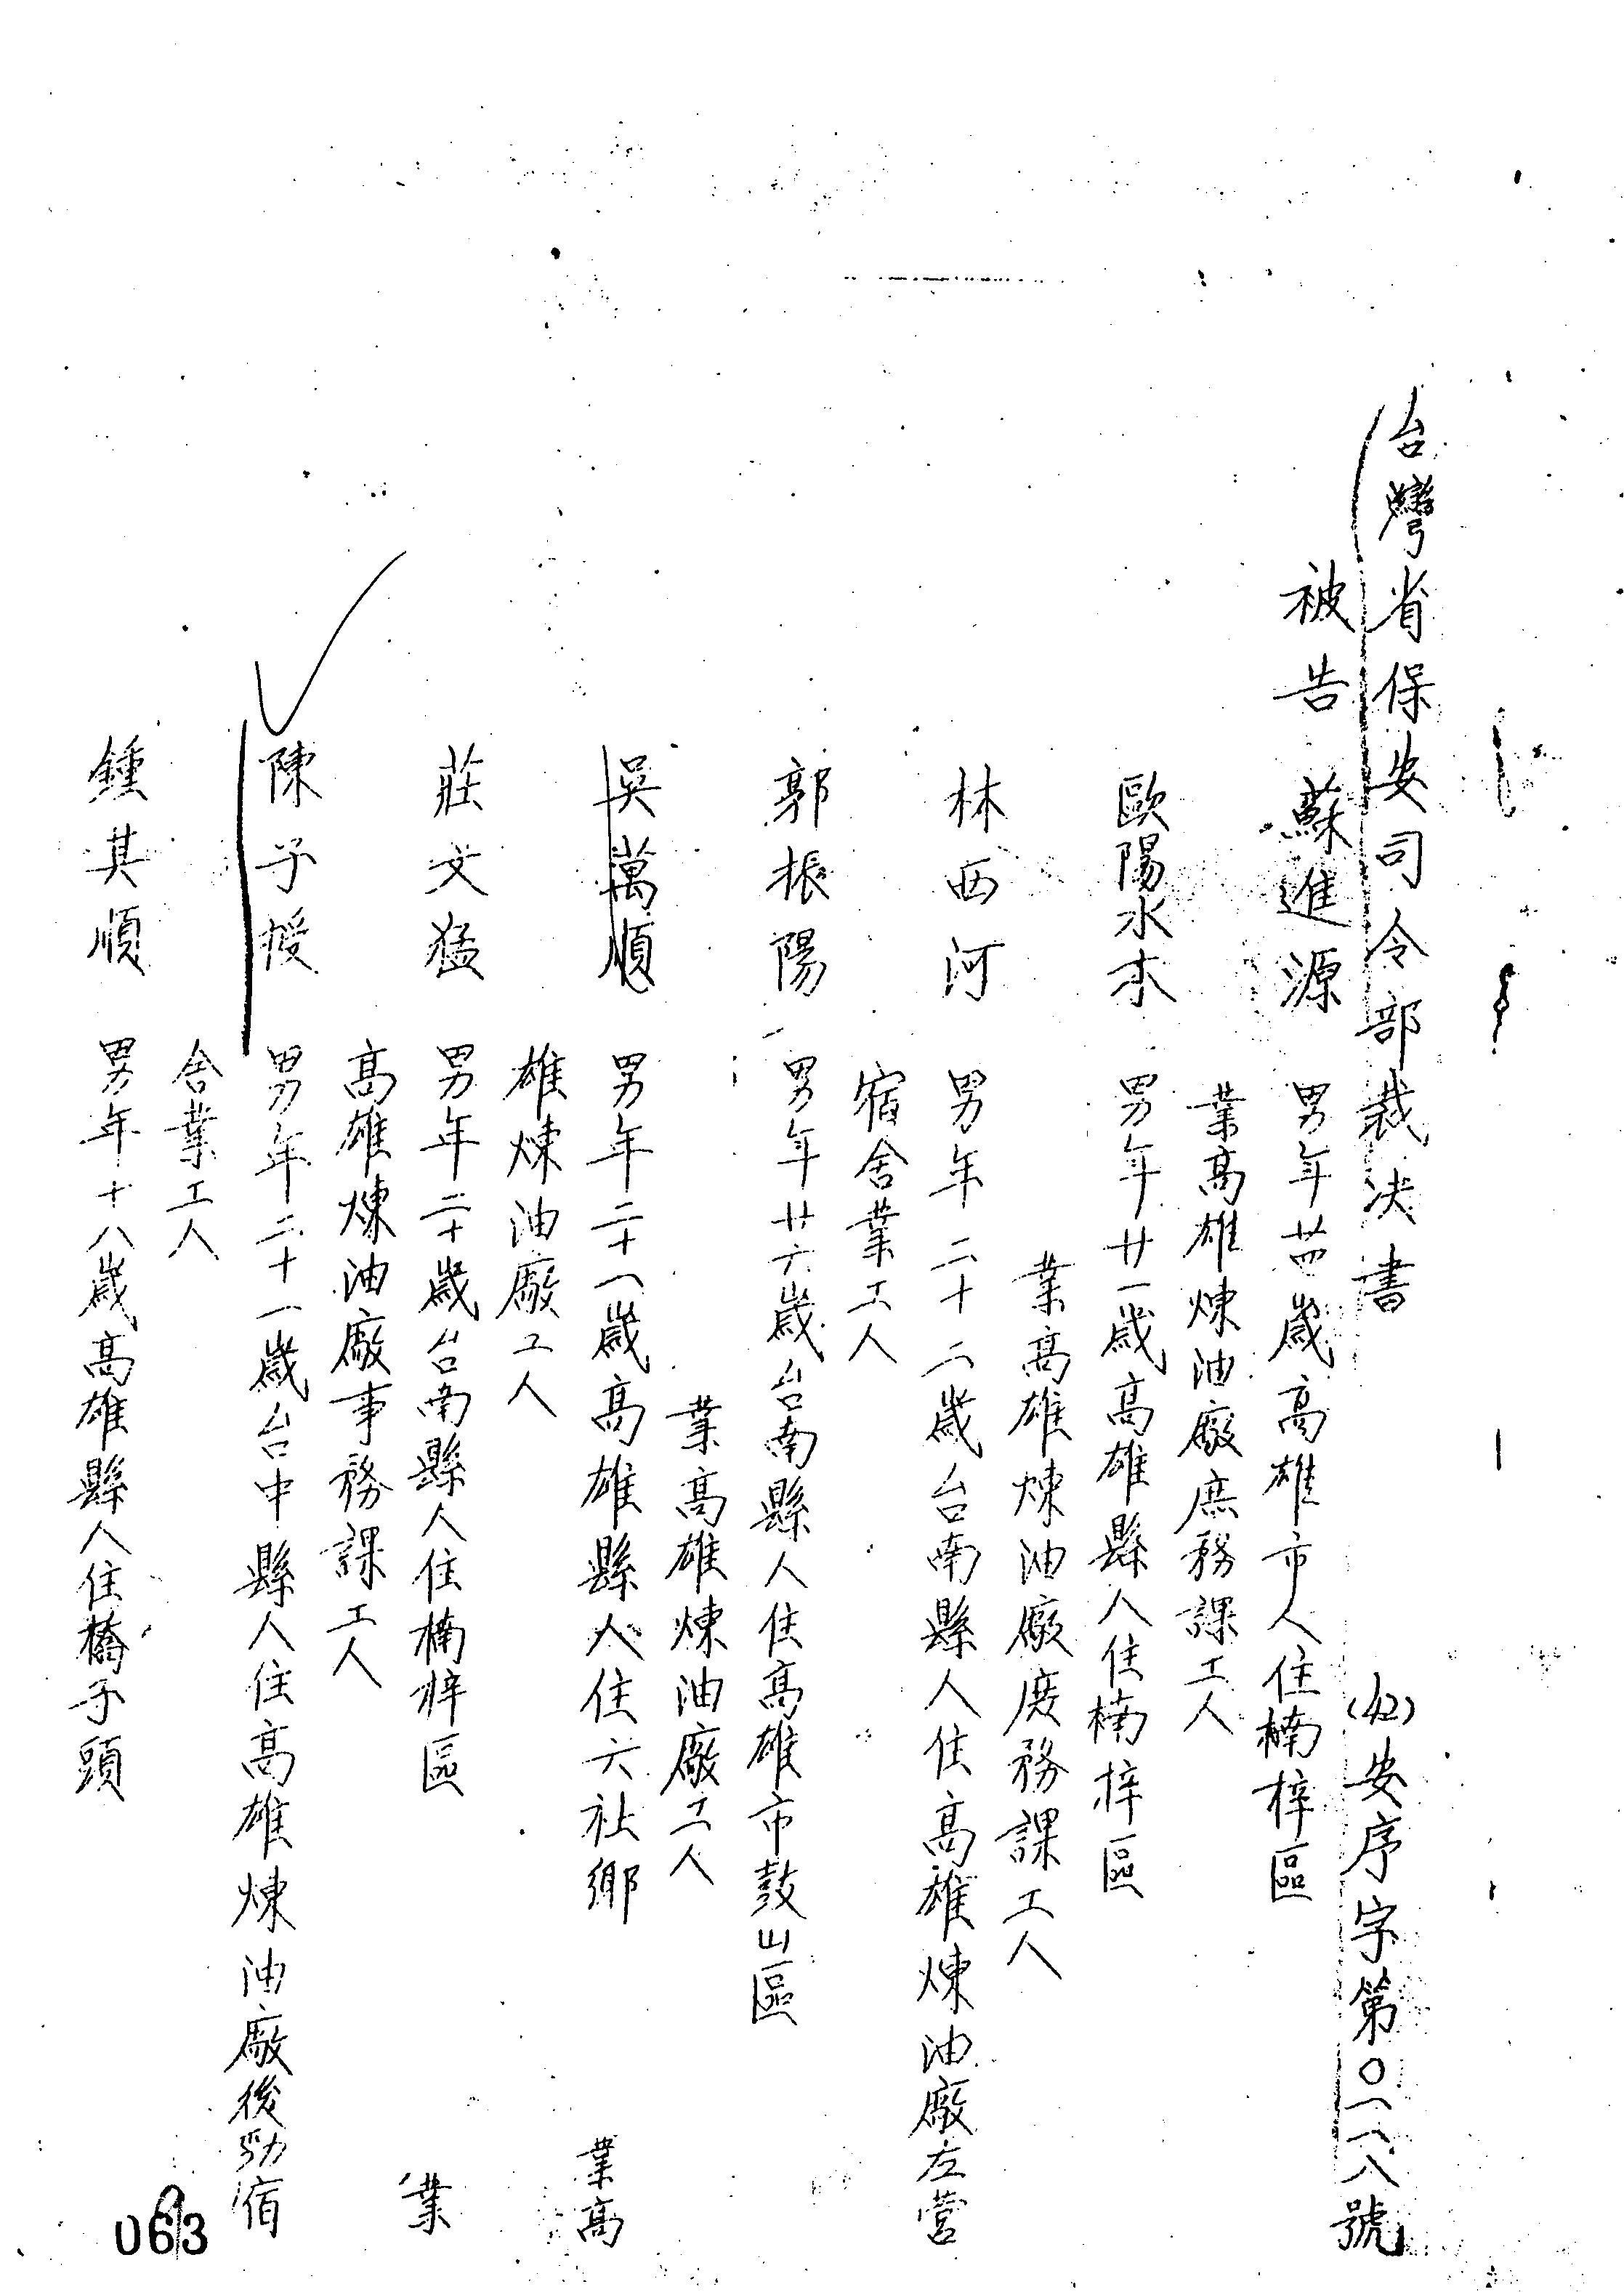 台灣省保安司令部裁决書 (42)安序字第〇一一八號
被告 蘇進源 男年廿四歲高雄市人住楠梓區
業高雄煉油廠庶務課工人
歐陽水木 男年廿一歲高雄縣人住楠梓區
業高雄煉油廠庶務課工人
林西河 男年二十二歲台南縣人住高雄煉油廠左营
宿舍業工人
郭振陽 男年廿六歲台南縣人住高雄市鼓山區
業高雄煉油廠工人
吳萬順 男年二十一歲高雄縣人住六社鄉 業高
雄煉油廠工人
莊文猛 男年二十歲台南縣人住楠梓區 業
高雄煉油廠事務課工人
陳子 男年二十一歲台中縣人住高雄煉油廠後勁宿
舍業工人
鍾其順 男年十八歲高雄縣人住橋子頭
063